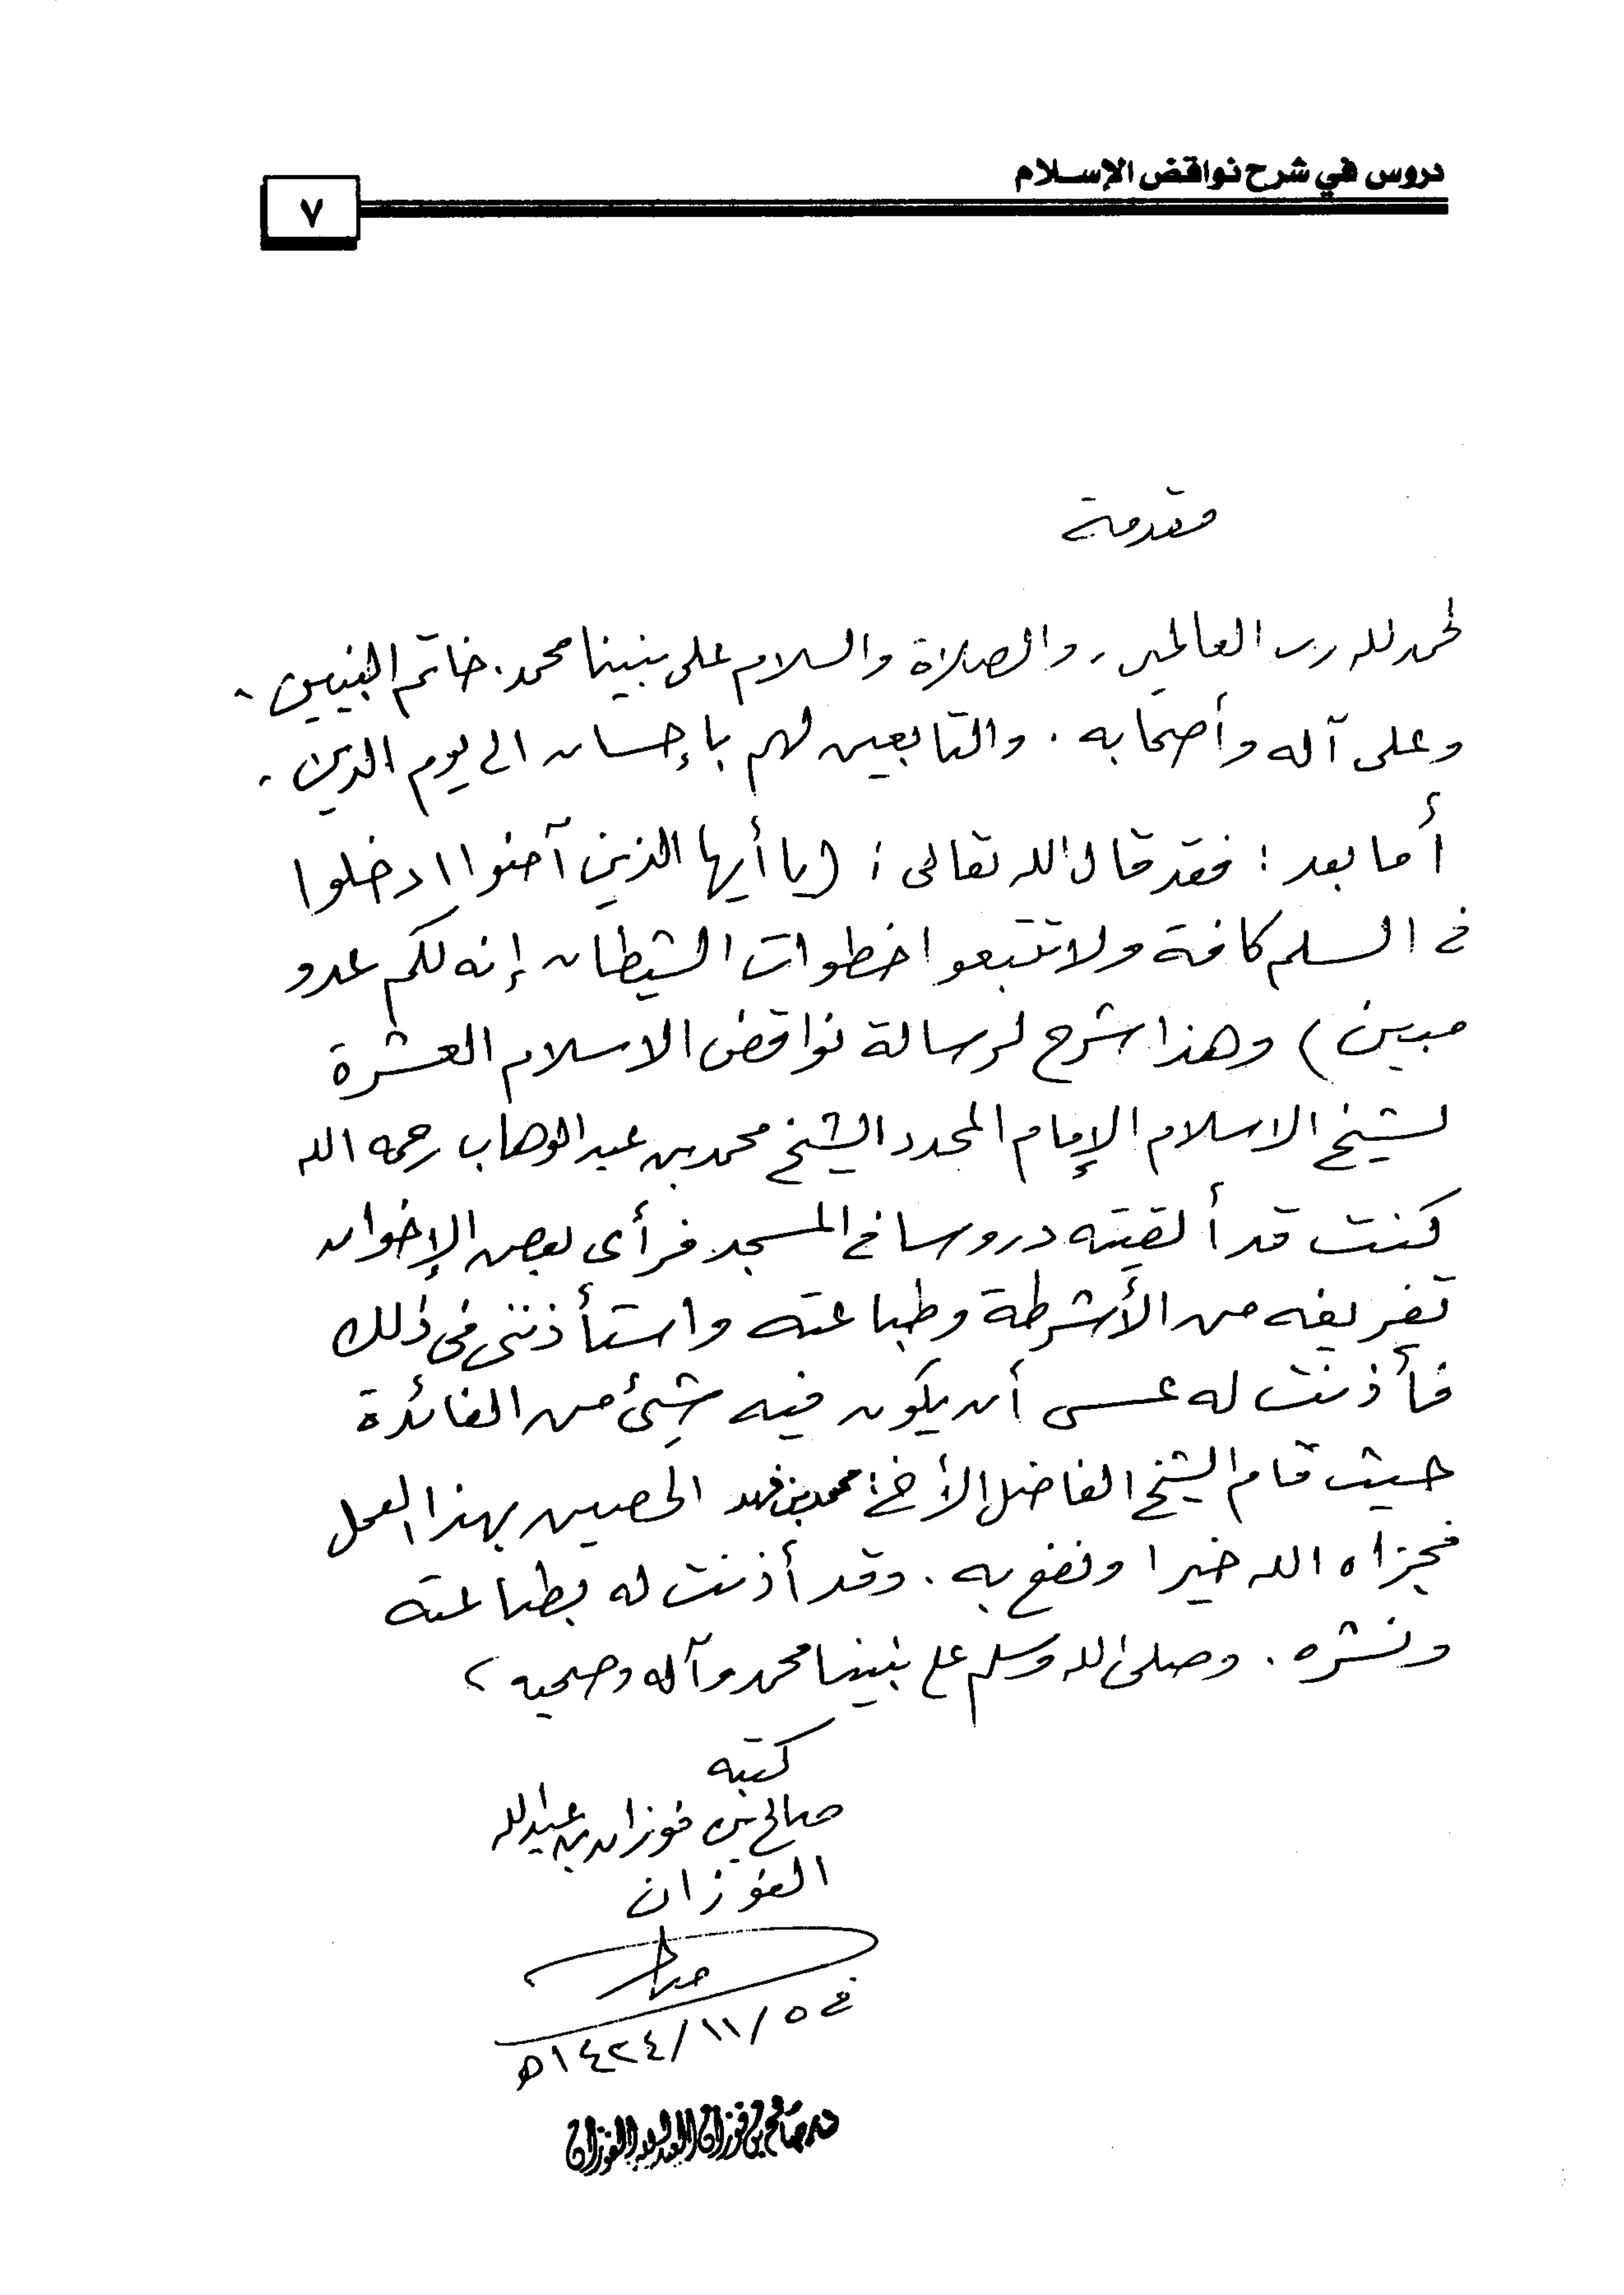 دروس في شرح نواقض الإسلام
٧
مقدمة
لحمد لله رب العالمين، والصلاة والسلام على نبينا محمد. خاتم النبيين.
وعلى آله وأصحابه. والتابعين لهم بإحسان الى يوم الدين.
أما بعد: فقد قال الله تعالى: (يا أيها الذين آمنوا ادخلوا
في السلم كافة ولا تتبعوا خطوات الشيطان إنه لكم عدو
مبين) وهذا شرح لرسالة نواقض الاسلام العشرة
لشيخ الاسلام الإمام المجدد الشيخ محمد بن عبد الوهاب رحمه الله
كنت قد ألقيته دروسا في المسجد فرأى بعض الإخوان
تفريغه من الأشرطة وطباعته واستأذنني في ذلك
فأذنت له عسى أن يكون فيه شئ من الفائدة
حيث قام الشيخ الفاضل الأخ: محمد بن فهد الحصين بهذا العمل
فجزاه الله خيرا ونفع به. وقد أذنت له بطباعته
ونشره. وصلى الله وسلم على نبينا محمد وآله وصحبه،
كتبه
صالح بن فوزان بن عبدالله
الفوزان
في ٥/١١/١٤٢٤ه
صالح بن فوزان الفوزان